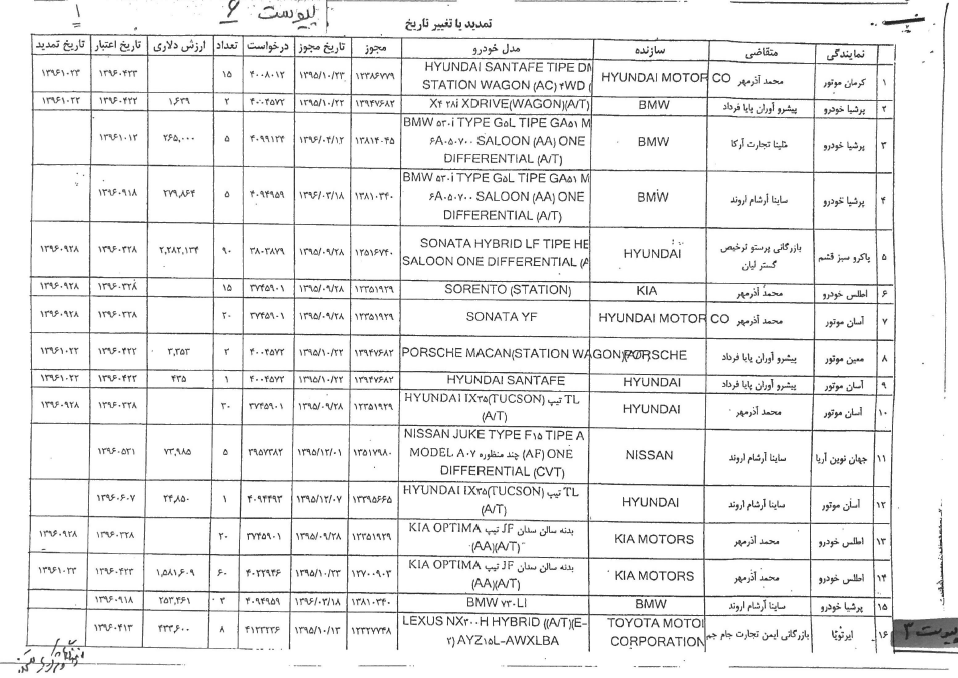 پیوست ۶
تمدید یا تغییر تاریخ
نمایندگی متقاضی سازنده مدل خودرو مجوز تاریخ مجوز درخواست تعداد ارزش دلاری تاریخ اعتبار تاریخ تمدید
۱ کرمان موتور محمد آذرمهر HYUNDAI MOTOR CO HYUNDAI SANTAFE TIPE DM ۱۲۳۸۶۷۷۹ ۱۳۹۵/۱۰/۲۳ ۴۰۰۸۰۱۲ ۱۵ ۱۳۹۶۰۴۲۳ ۱۳۹۶۱۰۲۳
STATION WAGON (AC) ۴WD (
۲ پرشیا خودرو پیشرو آوران پایا فرداد BMW X۴ ۲۸i XDRIVE(WAGON)(A/T) ۱۳۹۴۷۶۸۲ ۱۳۹۵/۱۰/۲۲ ۴۰۰۴۵۷۲ ۲ ۱,۶۳۹ ۱۳۹۶۰۴۲۲ ۱۳۹۶۱۰۲۲
۳ پرشیا خودرو ملینا تجارت آرکا BMW BMW ۵۳۰i TYPE G۵L TIPE GA۵۱ M ۱۳۸۱۴۰۴۵ ۱۳۹۶/۰۴/۱۲ ۴۰۹۹۱۲۴ ۵ ۲۶۵,۰۰۰ ۱۳۹۶۱۰۱۲
۶A۰۵۰۷۰۰ SALOON (AA) ONE
DIFFERENTIAL (A/T)
۴ پرشیا خودرو ساینا آرشام اروند BMW BMW ۵۳۰i TYPE G۵L TIPE GA۵۱ M ۱۳۸۱۰۳۴۰ ۱۳۹۶/۰۳/۱۸ ۴۰۹۴۹۵۹ ۵ ۲۷۹,۸۶۴ ۱۳۹۶۰۹۱۸
۶A۰۵۰۷۰۰ SALOON (AA) ONE
DIFFERENTIAL (A/T)
۵ پاکرو سبز قشم بازرگانی پرستو ترخیص گستر لیان HYUNDAI SONATA HYBRID LF TIPE HE ۱۲۵۱۶۷۴۷ ۱۳۹۵/۰۹/۲۸ ۳۸۰۳۸۷۹ ۹۰ ۲,۲۸۲,۱۳۴ ۱۳۹۶۰۳۲۸ ۱۳۹۶۰۹۲۸
SALOON ONE DIFFERENTIAL (A
۶ اطلس خودرو محمد آذرمهر KIA SORENTO (STATION) ۱۲۳۵۱۹۲۹ ۱۳۹۵/۰۹/۲۸ ۳۷۴۵۹۰۱ ۱۵ ۱۳۹۶۰۳۲۸ ۱۳۹۶۰۹۲۸
۷ آسان موتور محمد آذرمهر HYUNDAI MOTOR CO SONATA YF ۱۲۳۵۱۹۲۹ ۱۳۹۵/۰۹/۲۸ ۳۷۴۵۹۰۱ ۲۰ ۱۳۹۶۰۳۲۸ ۱۳۹۶۰۹۲۸
۸ معین موتور پیشرو آوران پایا فرداد PORSCHE PORSCHE MACAN(STATION WAGON)(A/T) ۱۳۹۴۷۶۸۲ ۱۳۹۵/۱۰/۲۲ ۴۰۰۴۵۷۲ ۳ ۳,۳۵۳ ۱۳۹۶۰۴۲۲ ۱۳۹۶۱۰۲۲
۹ آسان موتور پیشرو آوران پایا فرداد HYUNDAI HYUNDAI SANTAFE ۱۳۹۴۷۶۸۲ ۱۳۹۵/۱۰/۲۲ ۴۰۰۴۵۷۲ ۱ ۴۳۵ ۱۳۹۶۰۴۲۲ ۱۳۹۶۱۰۲۲
۱۰ آسان موتور محمد آذرمهر HYUNDAI HYUNDAI IX۳۵(TUCSON) تیپ TL ۱۲۳۵۱۹۲۹ ۱۳۹۵/۰۹/۲۸ ۳۷۴۵۹۰۱ ۳۰ ۱۳۹۶۰۳۲۸ ۱۳۹۶۰۹۲۸
(A/T)
۱۱ جهان نوین آریا ساینا آرشام اروند NISSAN NISSAN JUKE TYPE F۱۵ TIPE A ۱۳۵۱۷۹۸۰ ۱۳۹۵/۱۲/۰۱ ۳۹۵۷۳۸۲ ۵ ۷۳,۹۸۵ ۱۳۹۶۰۵۳۱
MODEL A۰۷ چند منظوره (AF) ONE
DIFFERENTIAL (CVT)
۱۲ آسان موتور ساینا آرشام اروند HYUNDAI HYUNDAI IX۳۵(TUCSON) تیپ TL ۱۳۳۹۵۶۶۵ ۱۳۹۵/۱۲/۰۷ ۴۰۹۴۴۹۳ ۱ ۲۴,۸۵۰ ۱۳۹۶۰۶۰۷
(A/T)
۱۳ اطلس خودرو محمد آذرمهر KIA MOTORS KIA OPTIMA بدنه سالن سدان JF تیپ ۱۲۳۵۱۹۲۹ ۱۳۹۵/۰۹/۲۸ ۳۷۴۵۹۰۱ ۲۰ ۱۳۹۶۰۳۲۸ ۱۳۹۶۰۹۲۸
(AA)(A/T)
۱۴ اطلس خودرو محمد آذرمهر KIA MOTORS KIA OPTIMA بدنه سالن سدان JF تیپ ۱۲۷۰۰۹۰۳ ۱۳۹۵/۱۰/۲۳ ۴۰۲۲۹۴۶ ۶۰ ۱,۵۸۱,۶۰۹ ۱۳۹۶۰۴۲۳ ۱۳۹۶۱۰۲۳
(AA)(A/T)
۱۵ پرشیا خودرو ساینا آرشام اروند BMW BMW ۷۳۰LI ۱۳۸۱۰۳۴۰ ۱۳۹۶/۰۳/۱۸ ۴۰۹۴۹۵۹ ۳ ۲۵۳,۴۶۱ ۱۳۹۶۰۹۱۸
۱۶ ایرتویا بازرگانی ایمن تجارت جام جم TOYOTA MOTOR CORPORATION LEXUS NX۳۰۰H HYBRID ((A/T)(E- ۱۲۳۲۷۷۴۸ ۱۳۹۵/۱۰/۱۳ ۴۱۲۳۲۳۶ ۸ ۴۳۳,۶۰۰ ۱۳۹۶۰۴۱۳
۲) AYZ۱۵L-AWXLBA
پیوست ۳